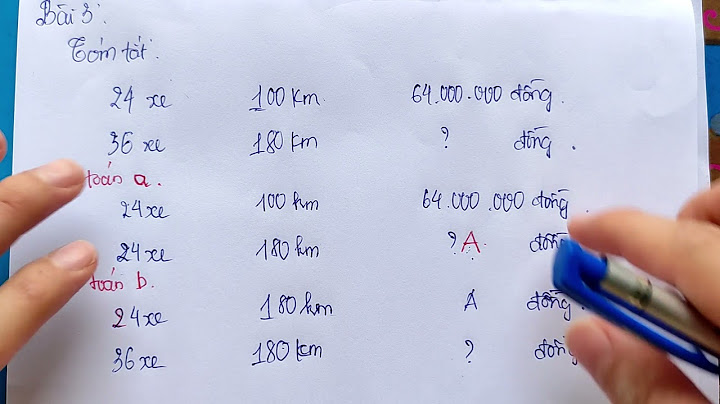 Bài 3:
Tóm tắt:
24 xe 100 km 64.000.000 đồng.
36 xe 180 km ? đồng.
toán a.
24 xe 100 km 64.000.000 đồng.
24 xe 180 km ? A đồng
toán b.
24 xe 180 km A đồng.
36 xe 180 km ? đồng